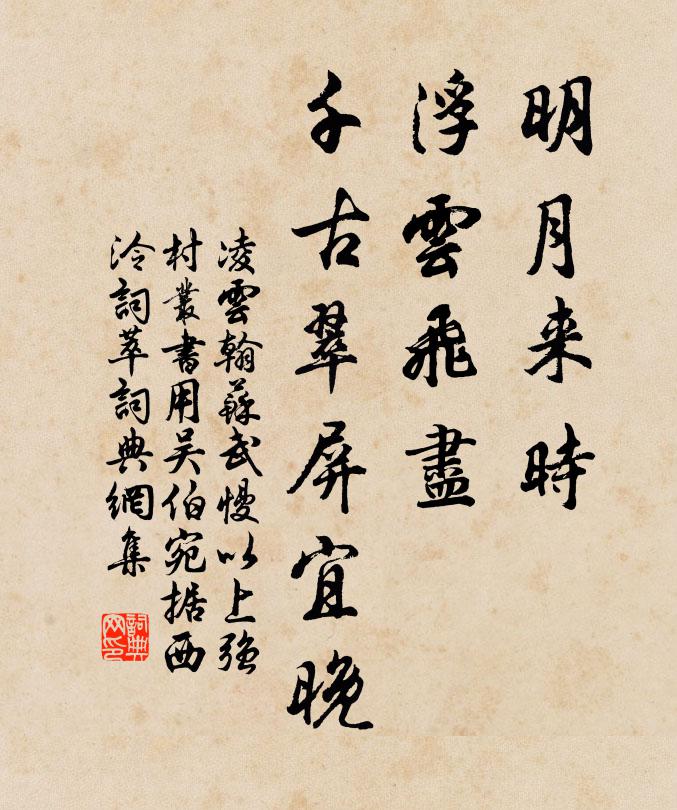 明月来時
浮雲飛盡
千古翠屏宜晚
凌雲翰蘇武慢以上强
村叢書用吴伯宛据西
泠詞萃詞典網集
詞典
网印